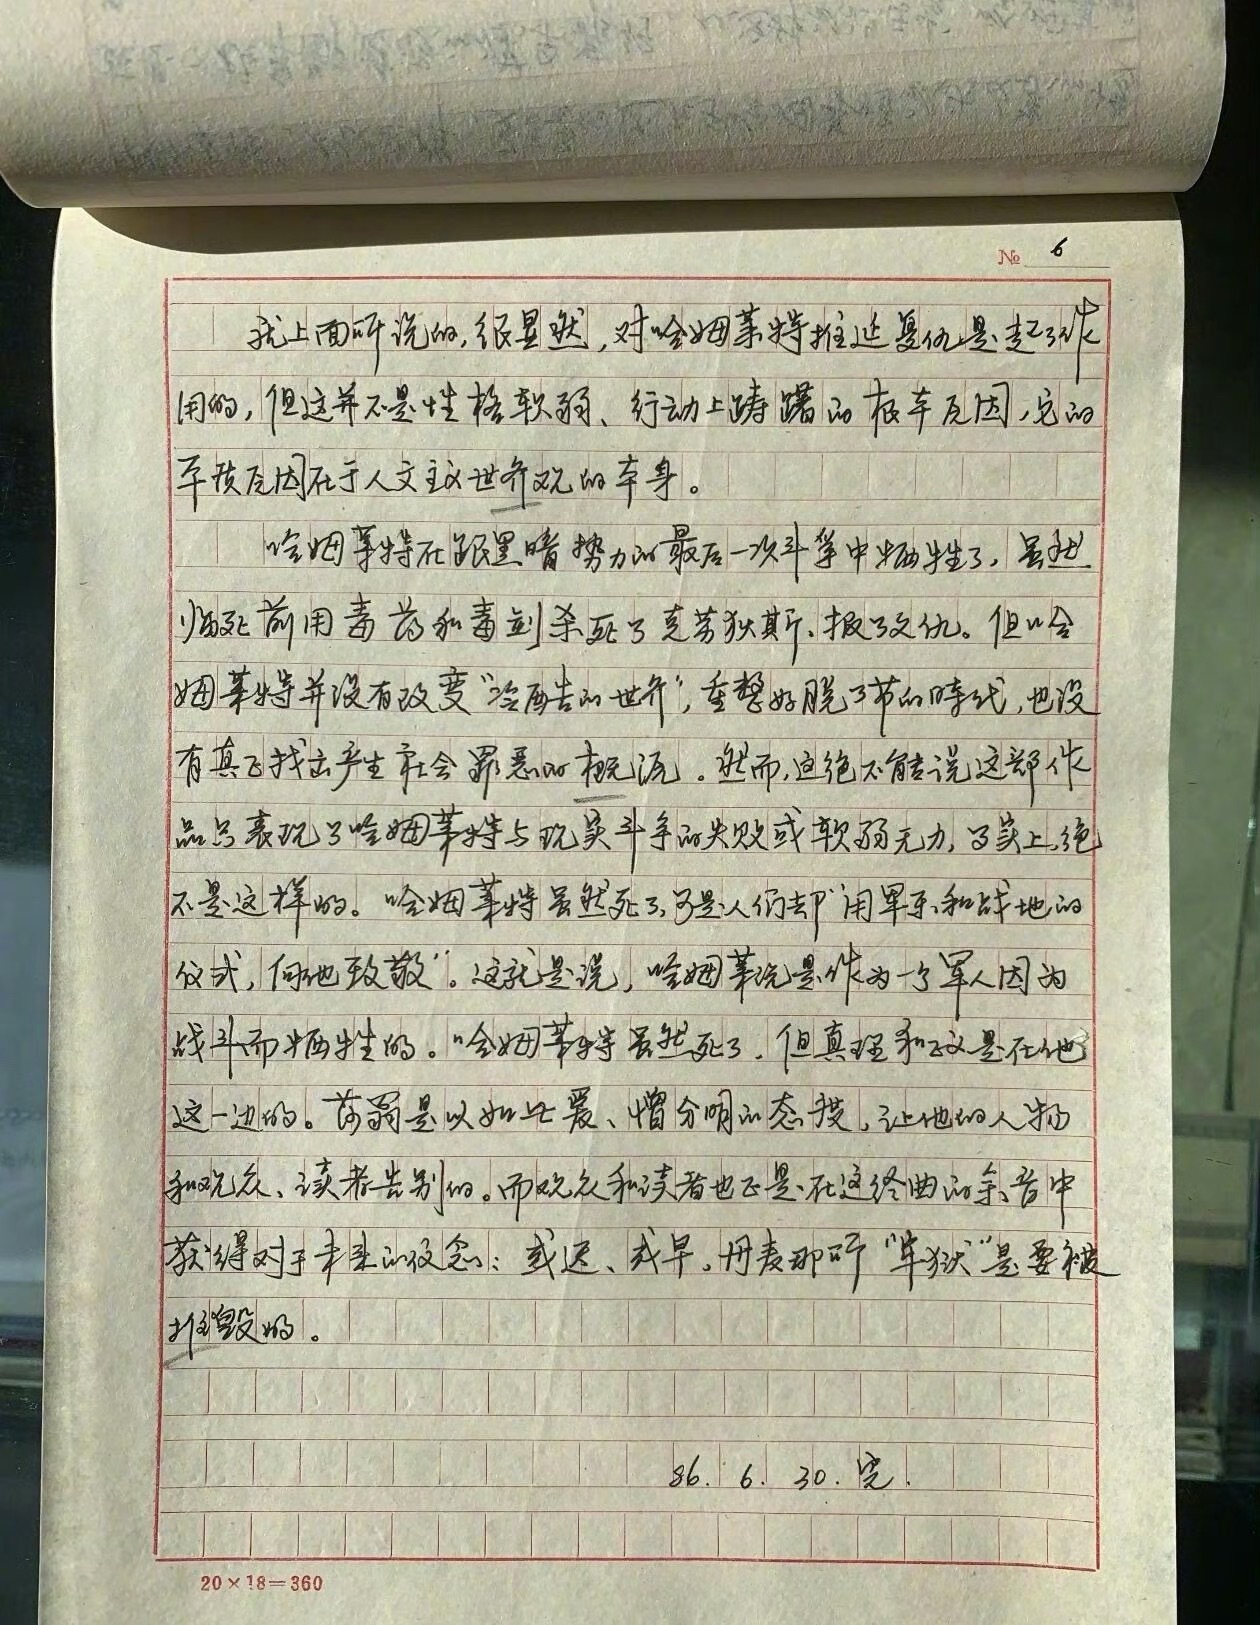 № 6
就上面所说的,很显然,对哈姆莱特推延复仇是起了作
用的,但这并不是性格软弱、行动上踌躇的根本原因,它的
本质原因在于人文主义世界观的本身。
哈姆莱特在跟黑暗势力的最后一次斗争中牺牲了,虽然
临死前用毒药和毒剑杀死了克劳狄斯、报了父仇。但哈
姆莱特并没有改变“冷酷的世界”,重整好脱了节的时代,也没
有真正找出产生社会罪恶的根源。然而,这绝不能说这部作
品只表现了哈姆莱特与现实斗争的失败或软弱无力,事实上,绝
不是这样的。哈姆莱特虽然死了,可是人们却“用军乐和战地的
仪式,向他致敬”。这就是说,哈姆莱说是作为一个军人因为
战斗而牺牲的。哈姆莱特虽然死了,但真理和正义是在他
这一边的。莎翁是以如此爱、憎分明的态度,让他的人物
和观众、读者告别的。而观众和读者也正是在这终曲的余音中
获得对于未来的信念:或迟、或早,丹麦那所“牢狱”是要被
摧毁的。
86. 6. 30. 完.
20×18=360